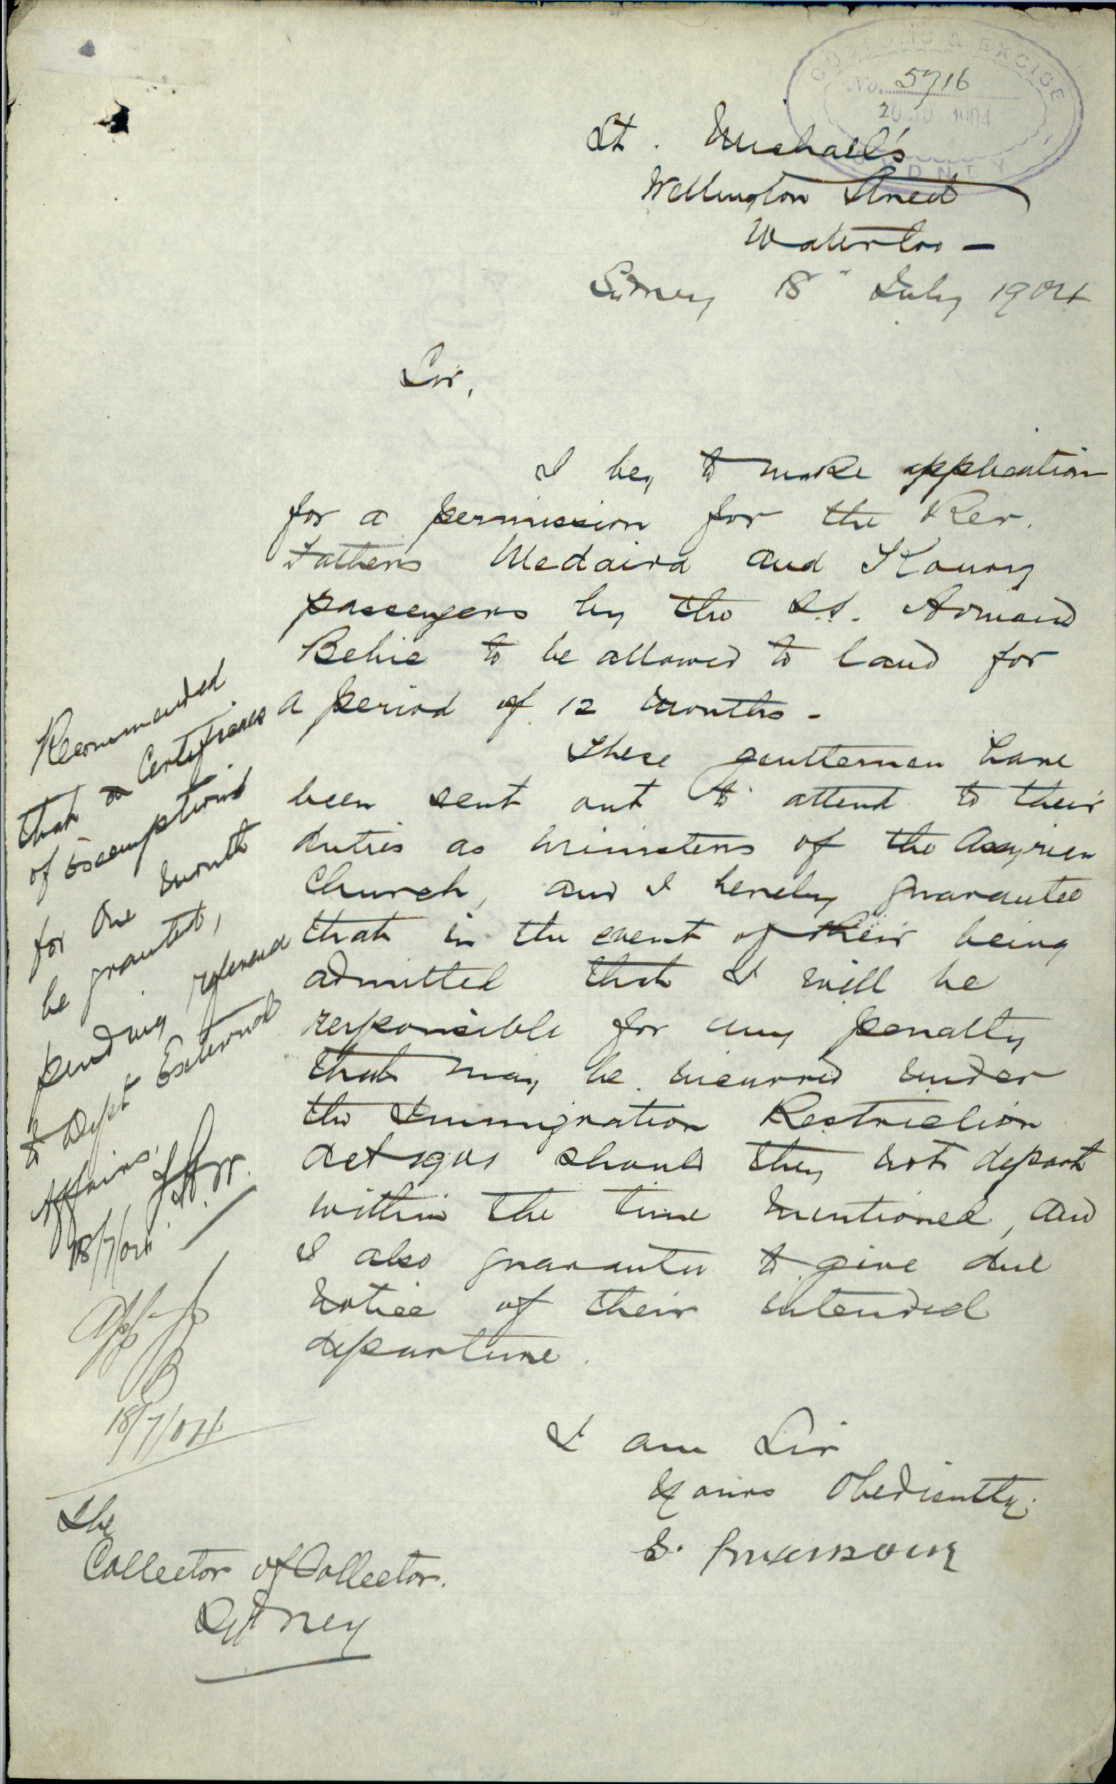 CUSTOMS & EXCISE
No. 5716
20 JUL 1904
SYDNEY
St. Michael's
Wellington Street
Waterloo -
Sydney 18" July 1904
Sir,
I beg to make application
for a permission for the Rev.
Fathers Medaira and Koury
passengers by the S.S. Armand
Behic to be allowed to land for
a period of 12 months -
These gentlemen have
been sent out to attend to their
duties as ministers of the Assyrien
Church, and I hereby guarantee
that in the event of their being
admitted that I will be
responsible for any penalty
that may be incurred under
the Immigration Restriction
Act 1901 should they not depart
within the time mentioned, and
I also guarantee to give due
notice of their intended
departure.
I am Sir
Yours Obediently.
S.
The
Collector of Collector.
Sydney
Recommended
that Certificates
of Exemptions
for One month
be granted,
pending reference
to Dept External
Affairs.
18/7/04
18/7/04